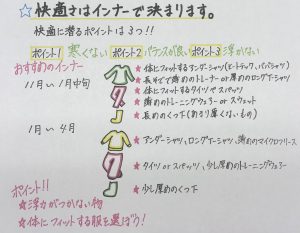 ☆快適さはインナーで決まります。
快適に潜るポイントは3つ!!
ポイント1 寒くない ポイント2 バランスが良い ポイント3 浮かない
おすすめのインナー
11月〜1月中旬
★体にフィットするアンダーシャツ(ヒートテック, パパシャツ)
★長そでで薄めのトレーナーor厚めのロングTシャツ
★体にフィットするタイツorスパッツ
★薄めのトレーニングウェアーorスウェット
★長めのくつ下(あまり厚くないもの)
1月〜4月
★アンダーシャツ, ロングTシャツ, 薄めのマイクロフリース
★タイツorスパッツ, 少し厚めのトレーニングウェアー
★少し厚めのくつ下
ポイント!!
★浮力がつかない物
★体にフィットする服を選ぼう!